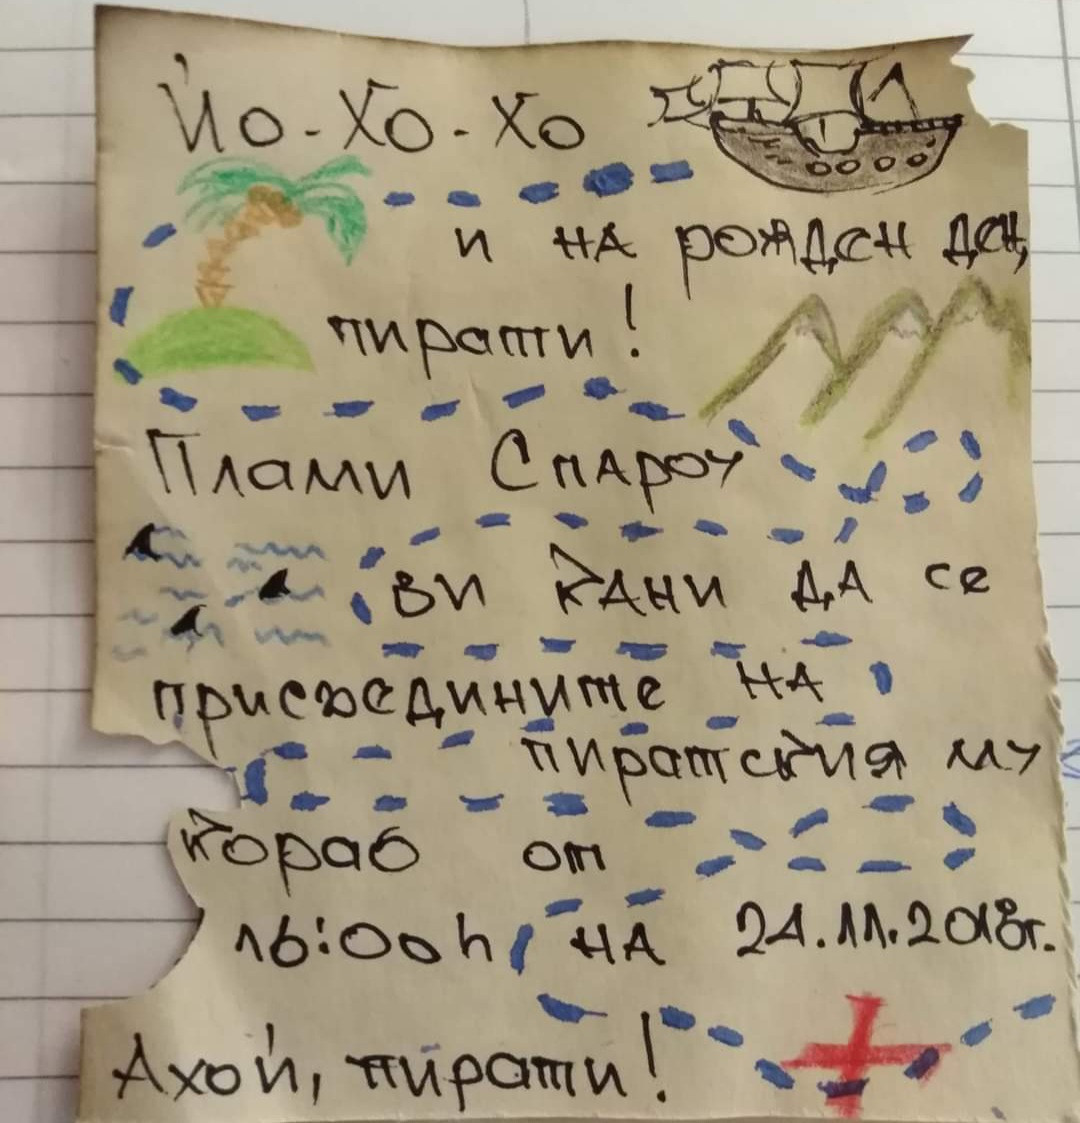 Йо-Хо-Хо
и на рожден ден,
пирати!
Плами Спароу
ви кани да се
присъедините на
пиратския му
кораб от
16:00h на 24.11.2018г.
Ахой, пирати!